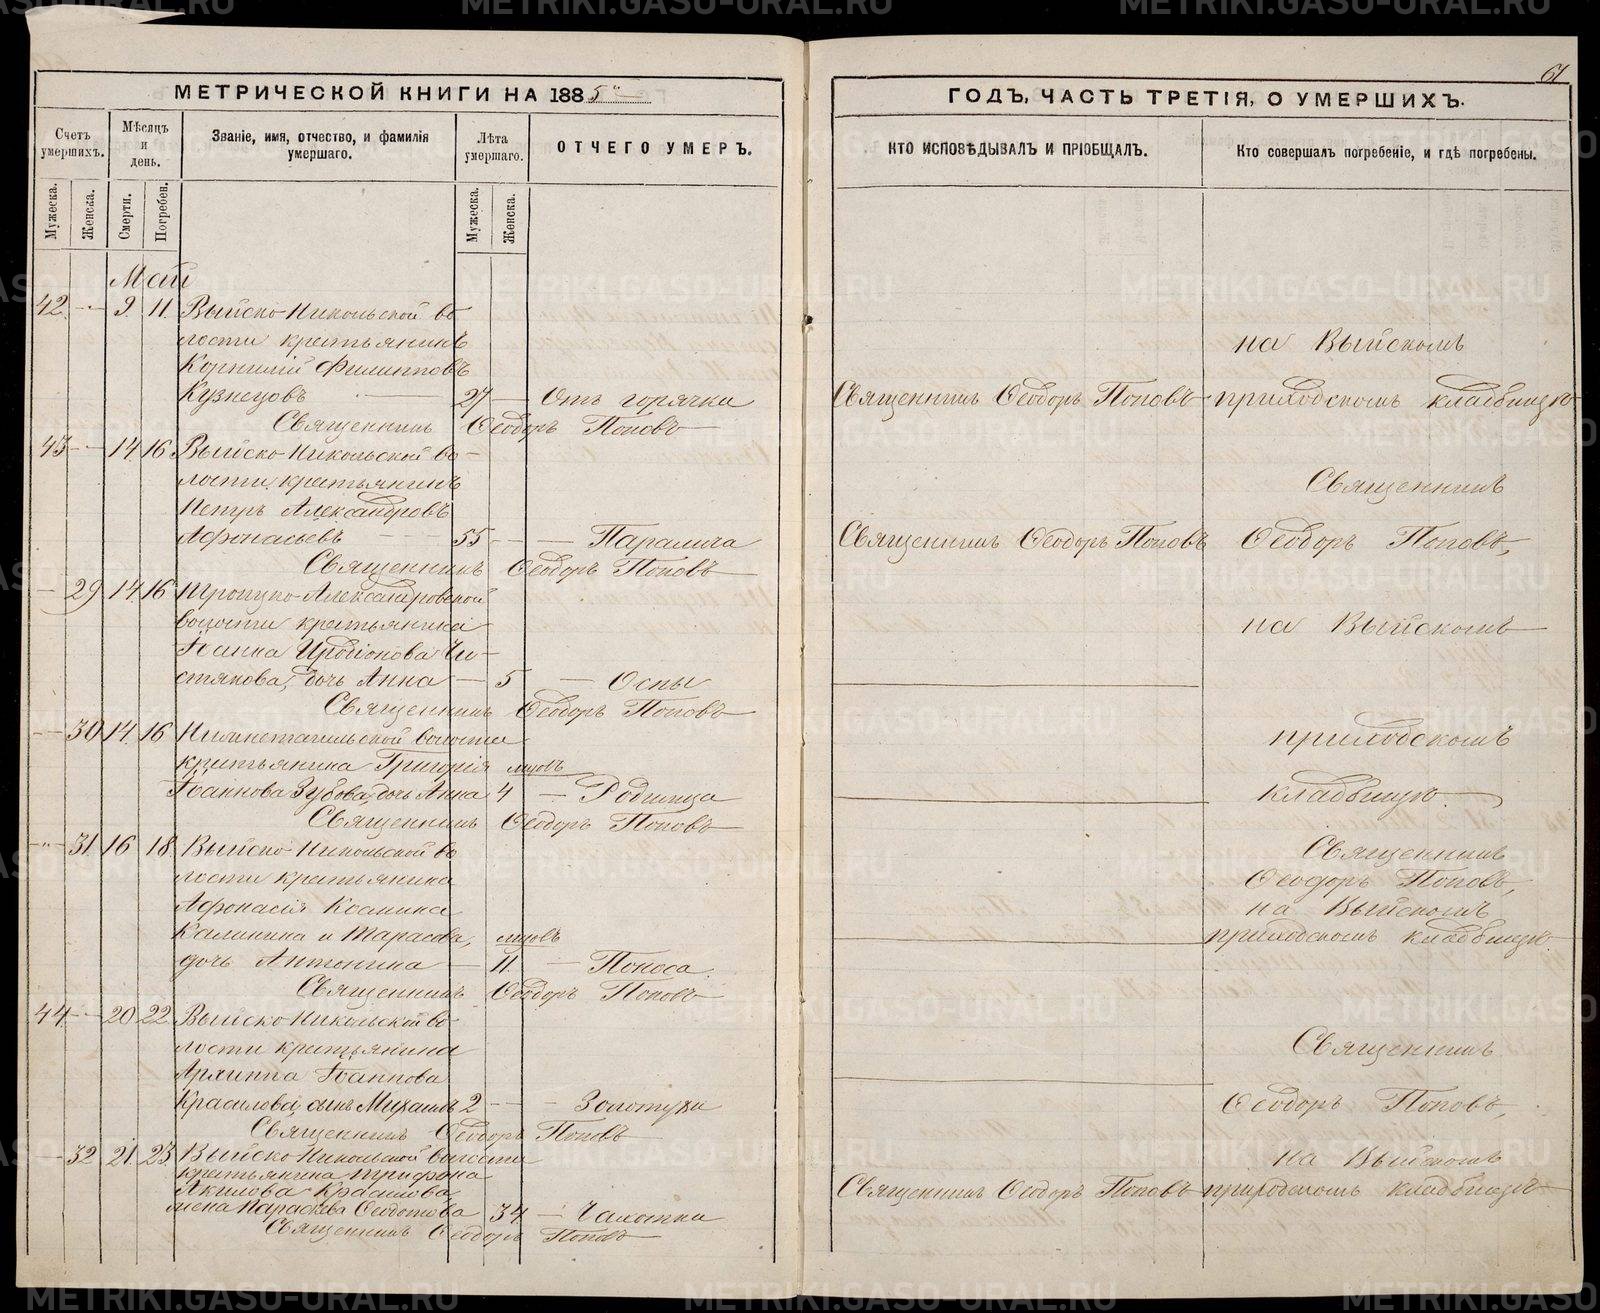 МЕТРИЧЕСКОЙ КНИГИ НА 1885
Счетъ умершихъ.
Мѣсяцъ и день.
Званіе, имя, отчество, и фамилія умершаго.
Лѣта умершаго.
ОТЧЕГО УМЕРЪ.
Мужеска. Женска. Смерти. Погребен. Мужеска. Женска.
Май
42 9 11 Выйско-Никольской во
лости крестьянинъ
Корнилій Филипповъ
Кузнецовъ 27 Отъ горячки
Священникъ Ѳеодоръ Поповъ
43 14 16 Выйско-Никольской во-
лости крестьянинъ
Петръ Александровъ
Афонасьевъ 55 Паралича
Священникъ Ѳеодоръ Поповъ
29 14 16 Троицко-Александровской
волости крестьянина
Іоанна Иродіонова Чи-
стякова, дочь Анна 5 Оспы
Священникъ Ѳеодоръ Поповъ
30 14 16 Нижнетагильской волости
крестьянина Григорія мцовъ
Іоаннова Зубова, дочь Анна 4 Родимца
Священникъ Ѳеодоръ Поповъ
31 16 18 Выйско-Никольской во
лости крестьянина
Афонасія
Калинина и Тарасова, мцовъ
дочь Антонина 11 Поноса.
Священникъ Ѳеодоръ Поповъ
44 20 22 Выйско-Никольской во-
лости крестьянина
Архиппа Іоаннова
Красилова, сынъ Михаилъ 2 Золотухи
Священникъ Ѳеодоръ Поповъ
32 21 23 Выйско-Никольской волости
крестьянина Трифона
Акилова Красилова,
жена Параскева Ѳедотова 34 Чахотки
Священникъ Ѳеодоръ Поповъ
61
ГОДЪ, ЧАСТЬ ТРЕТІЯ, О УМЕРШИХЪ.
КТО ИСПОВѢДЫВАЛЪ И ПРІОБЩАЛЪ.
Кто совершалъ погребеніе, и гдѣ погребены.
на Выйскомъ
Священникъ Ѳеодоръ Поповъ приходскомъ кладбищѣ
Священникъ
Священникъ Ѳеодоръ Поповъ Ѳеодоръ Поповъ,
на Выйскомъ
приходскомъ
кладбищѣ.
Священникъ
Ѳеодоръ Поповъ,
на Выйскомъ
приходскомъ кладбищѣ.
Священникъ
Ѳеодоръ Поповъ,
на Выйскомъ
Священникъ Ѳеодоръ Поповъ приходскомъ кладбищѣ
METRIKI.GASO-URAL.RU